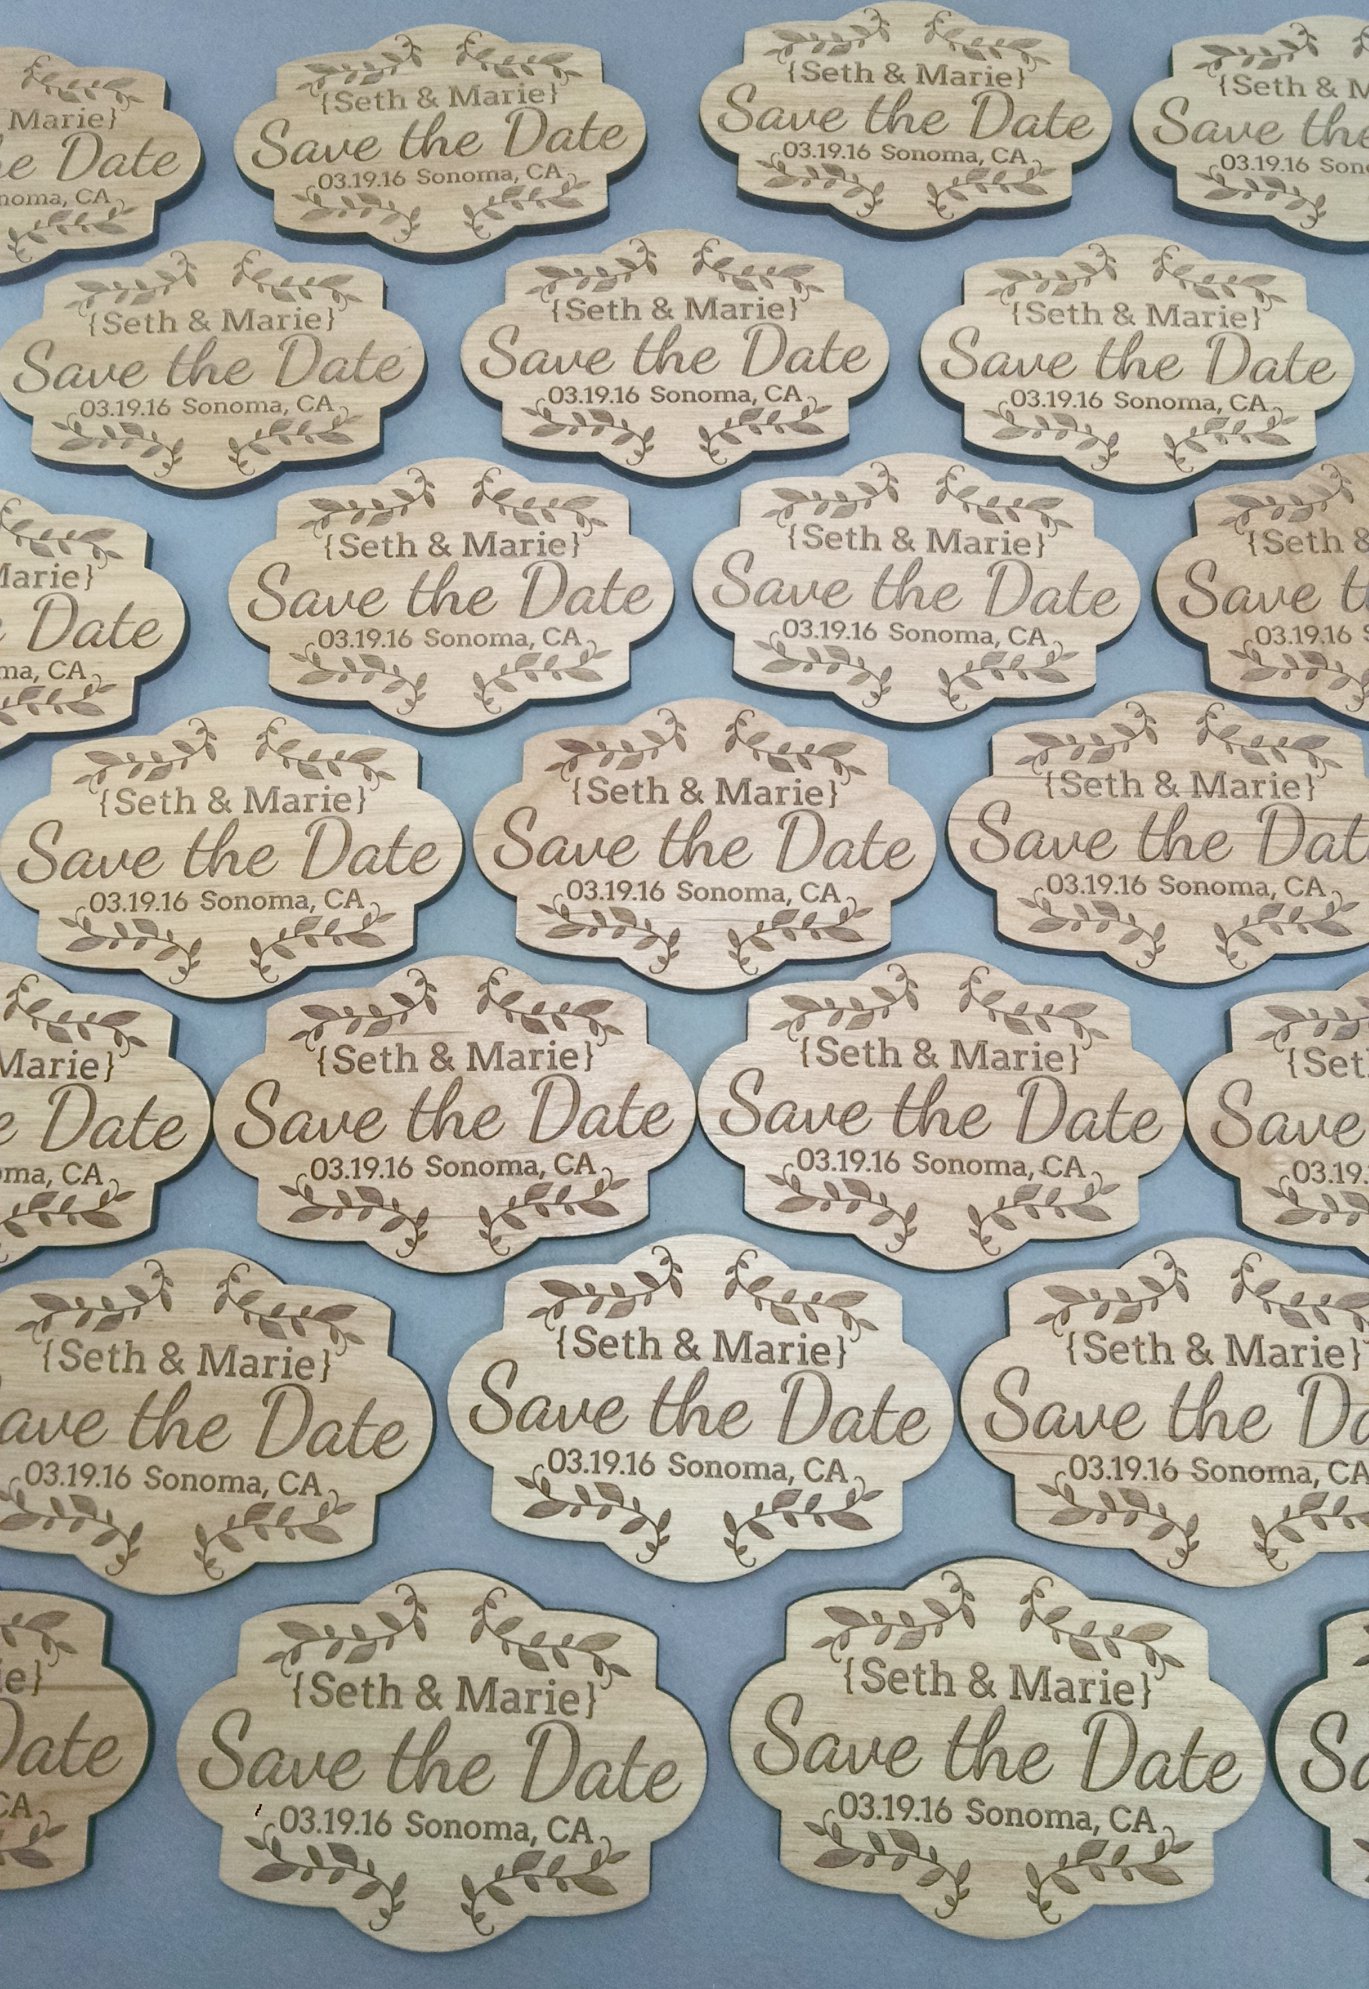 Marie}
{Seth & Marie}
{Seth & Marie}
{Seth & M
e Date
Save the Date
Save the Date
Save the
noma, CA
03.19.16 Sonoma, CA
03.19.16 Sonoma, CA
03.19.16 Son
{Seth & Marie}
{Seth & Marie}
{Seth & Marie}
Save the Date
Save the Date
Save the Date
03.19.16 Sonoma, CA
03.19.16 Sonoma, CA
03.19.16 Sonoma, CA
Marie}
{Seth & Marie}
{Seth & Marie}
{Seth &
Date
Save the Date
Save the Date
Save t
ma, CA
03.19.16 Sonoma, CA
03.19.16 Sonoma, CA
03.19.16
{Seth & Marie}
{Seth & Marie}
{Seth & Marie}
Save the Date
Save the Date
Save the Dat
03.19.16 Sonoma, CA
03.19.16 Sonoma, CA
03.19.16 Sonoma, CA
Marie}
{Seth & Marie}
{Seth & Marie}
{Set
e Date
Save the Date
Save the Date
Save
oma, CA
03.19.16 Sonoma, CA
03.19.16 Sonoma, CA
03.19.
{Seth & Marie}
{Seth & Marie}
{Seth & Marie}
ave the Date
Save the Date
Save the Da
03.19.16 Sonoma, CA
03.19.16 Sonoma, CA
03.19.16 Sonoma, CA
ie}
{Seth & Marie}
{Seth & Marie}
Date
Save the Date
Save the Date
Sa
CA
03.19.16 Sonoma, CA
03.19.16 Sonoma, CA